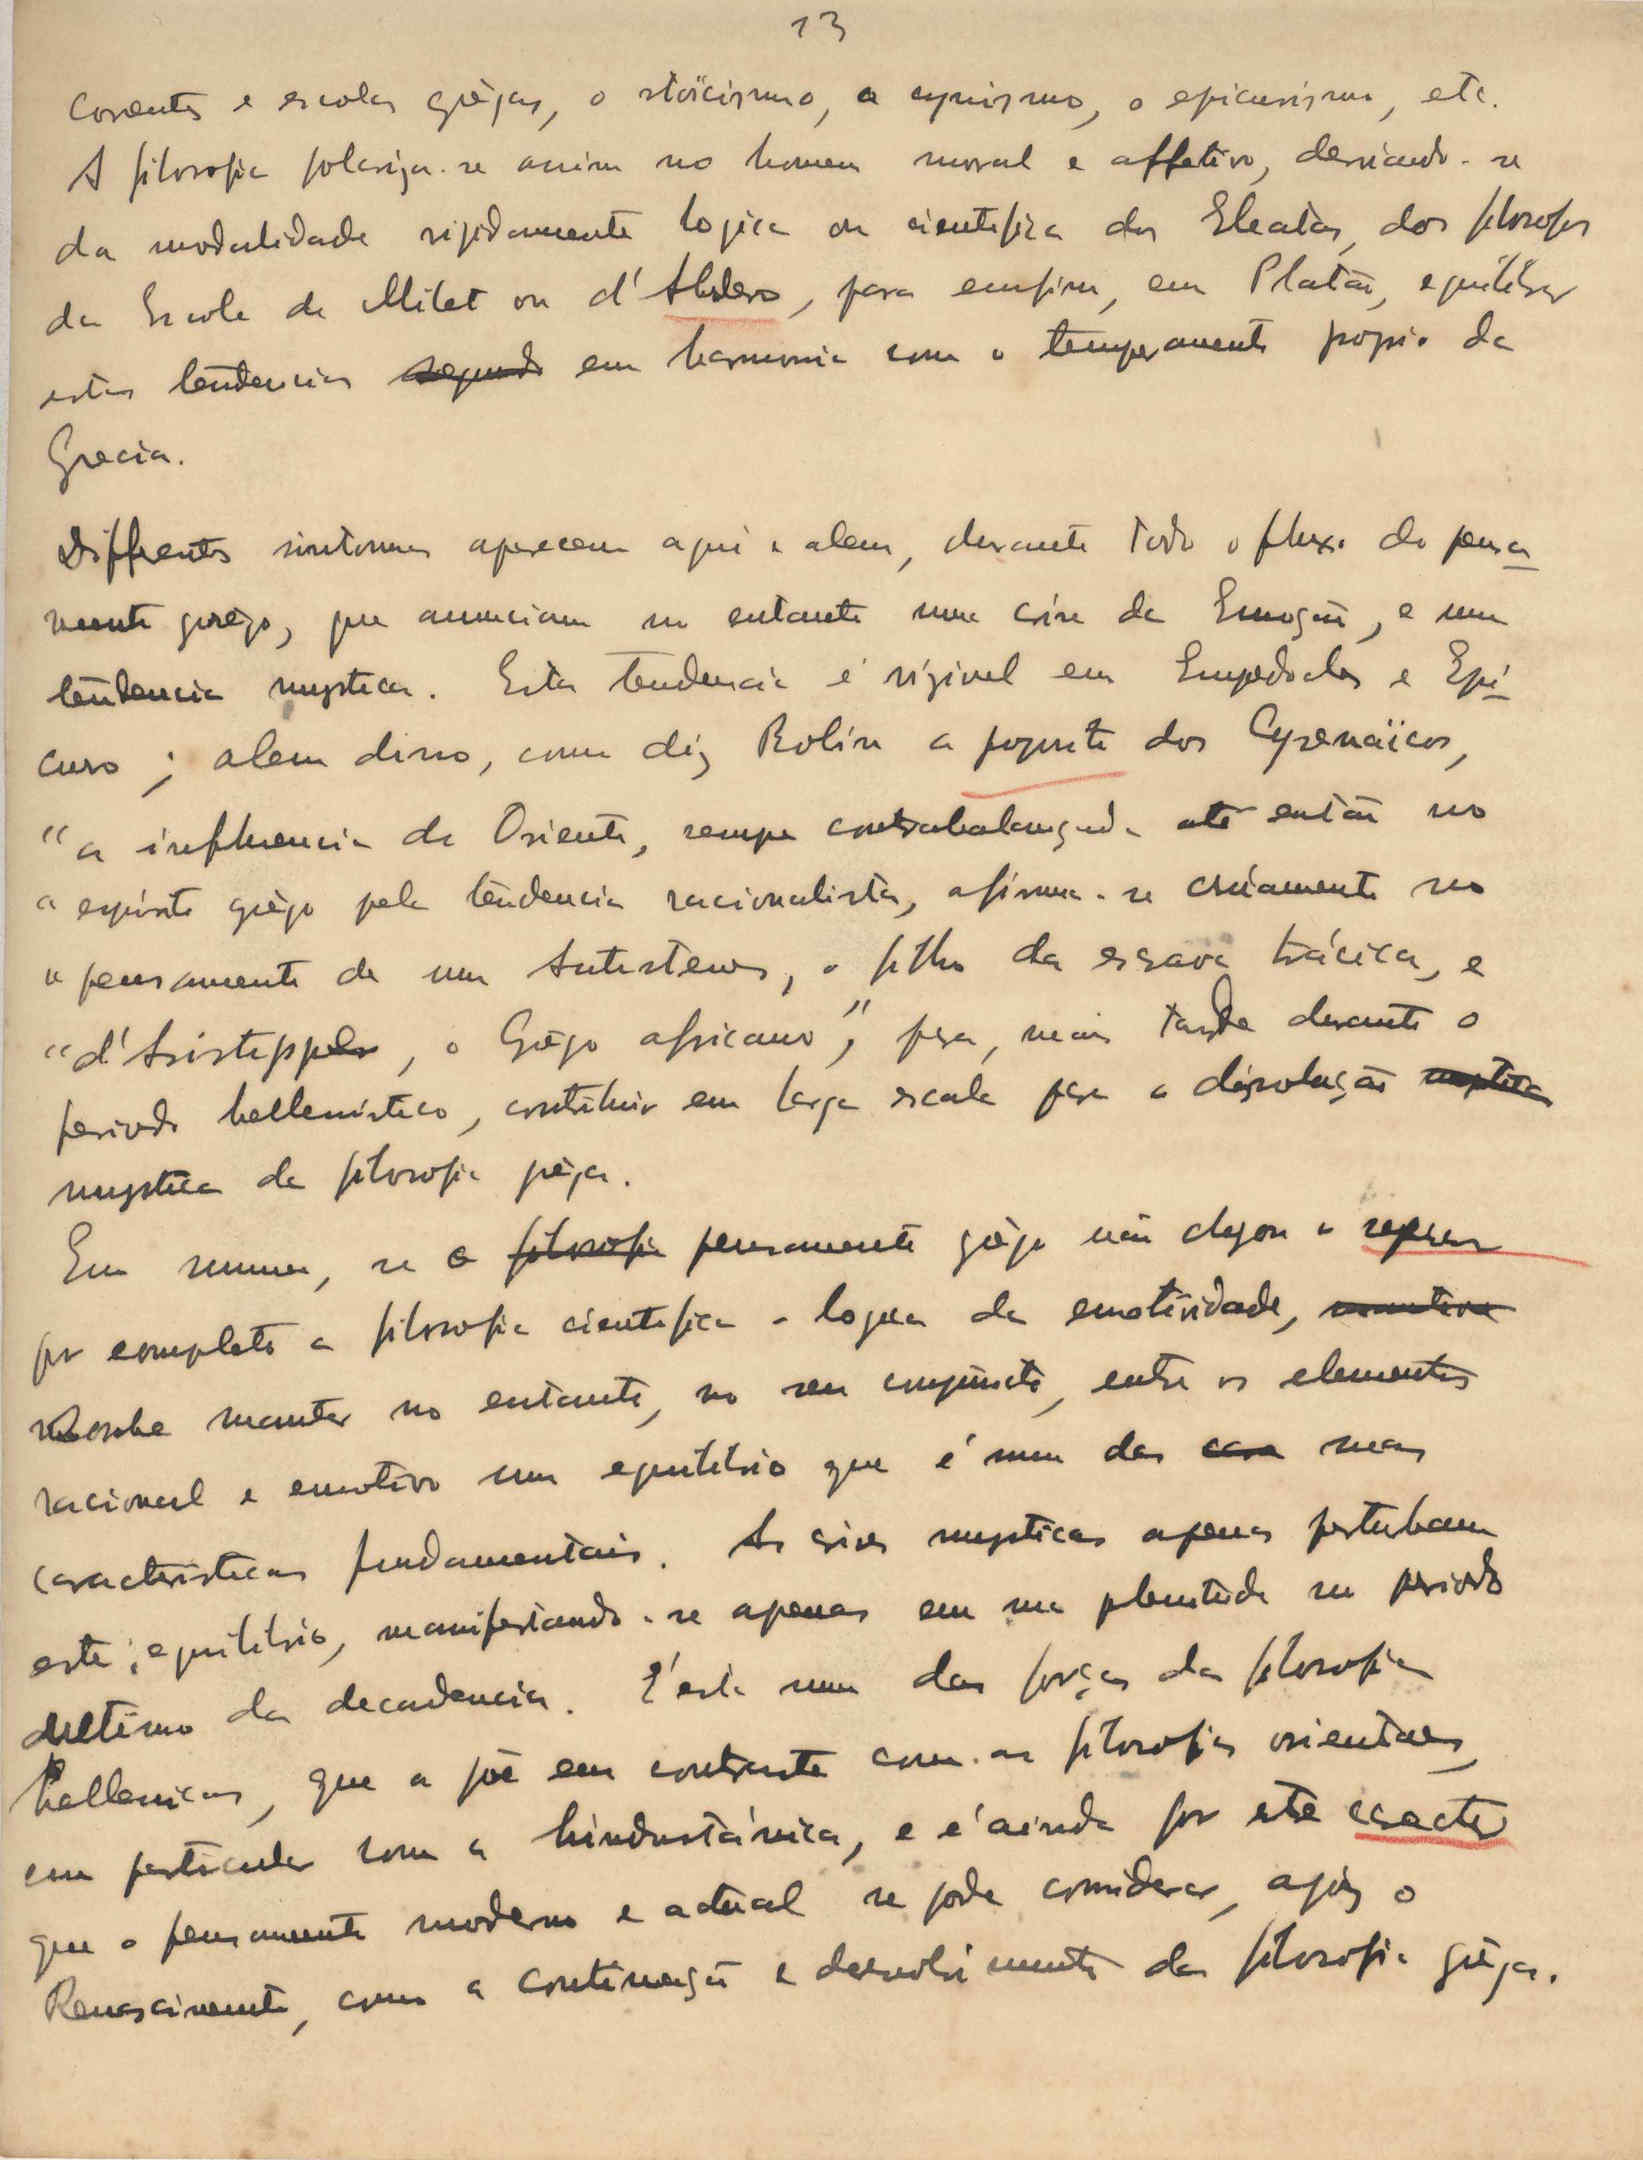 13
correntes e escolas grègas, o stoïcismo, o cynismo, o epicurismo, etc.
A filosofia polariza-se assim no homem moral e affetivo, desviando-se
da modalidade rigidamente logica ou cientifica dos Eleatas, dos filosofos
da Escola de Milet ou d'Abdera, para emfim, em Platão, equilibrar
estas tendencias segundo em harmonia com o temperamento proprio da
Grecia.
Differentes sintomas aparecem aqui e alem, durante todo o fluxo do pensa
mento grègo, que anunciam no entanto uma crise da Emoção, e uma
tendencia mystica. Esta tendencia é vizivel em Empedocles e Epi
curo; alem disso, como diz Robin a proposito dos Cyrenaïcos,
"a influencia do Oriente, sempre contrabalançada até então no
"espirito grègo pela tendencia racionalista, afirma-se claramente no
"pensamento de um Antistenes, o filho da escrava trácica, e
"d'Aristippo, o Grègo africano", para, mais tarde durante o
periodo hellenistico, contribuir em larga escala para a dissolução mystica
mystica da filosofia grèga.
Em summa, se o filosofia pensamento grègo não chegou a separar
por completo a filosofia cientifica e logica da emotividade,
soube manter no entanto, no seu conjuncto, entre os elementos
racional e emotivo um equilibrio que é uma das suas
caracteristicas fundamentais. As crises mysticas apenas perturbam
este equilibrio, manifestando-se apenas em sua plenitude no periodo
ultimo da decadencia. É esta uma das forças da filosofia
hellenica, que a põe em contraste com as filosofias orientaes,
em particular com a hindustánica, e é ainda por este caracter
que o pensamento moderno e actual se pode considerar, após o
Renascimento, como a continuação e desenvolvimento da filosofia grèga.